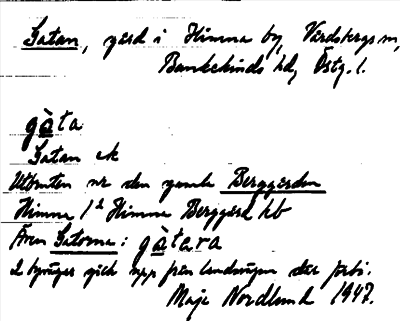 Gatan, gård i Himna by, Vårdsbergs sn,
Bankekinds hd, Östg. l.
gàta
Gatan ek
Utbruten ur den gamla Berggården
Himna 1² Himna Berggård kb
Även Gatorna: gàtara
2 byvägar gick upp från landsvägen där förbi.
Maja Nordlund 1947.